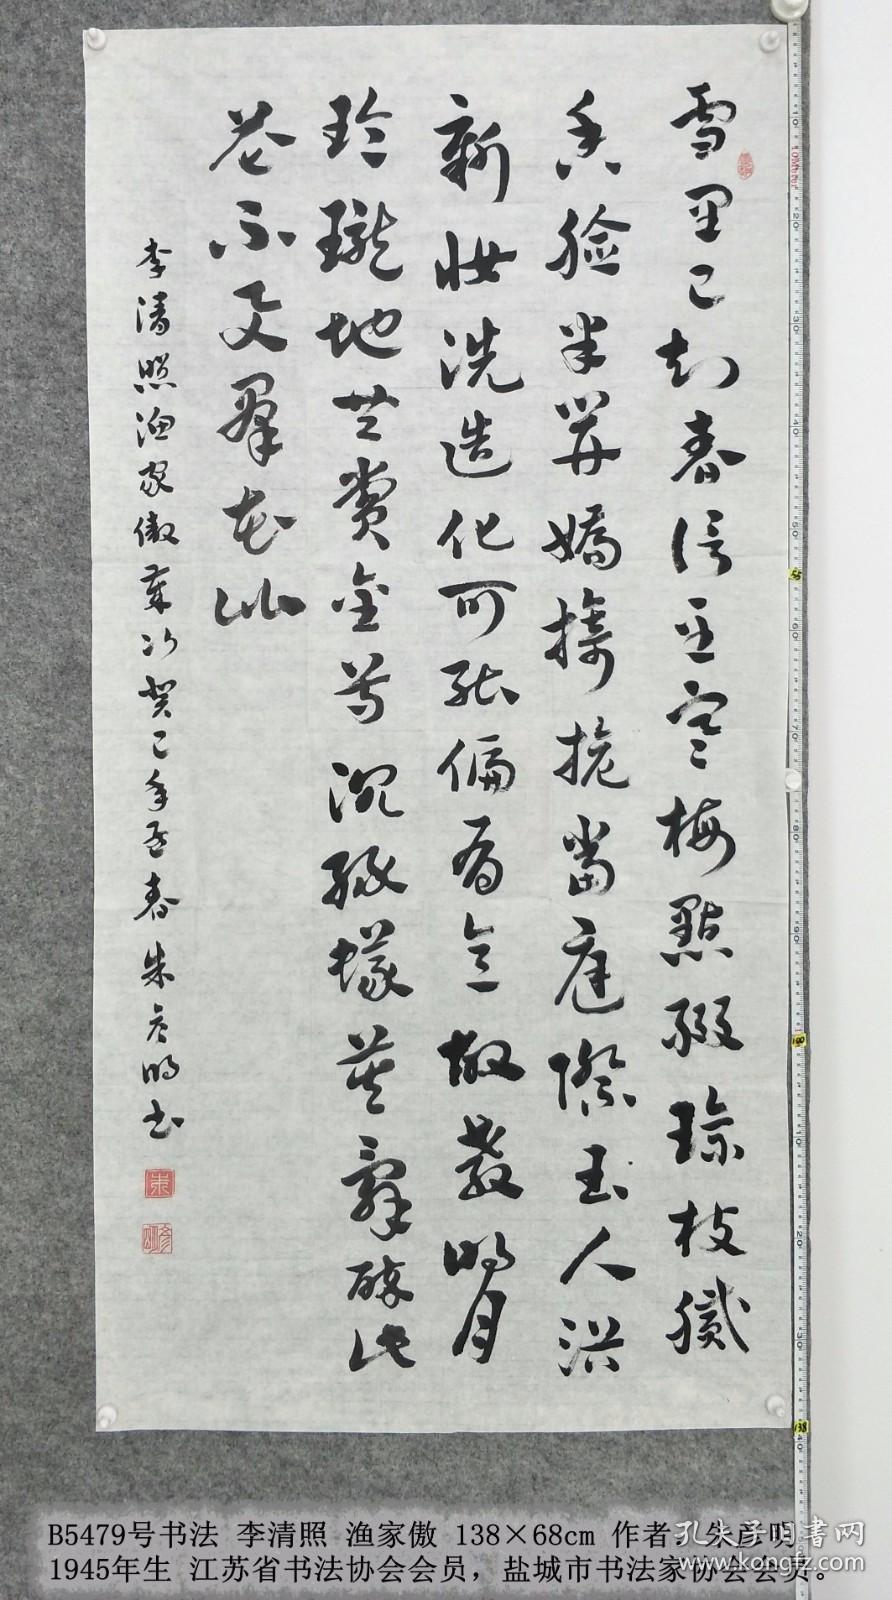 雪里已知春信至寒梅點綴琼枝膩
香臉半開嬌旖旎當庭際玉人浴
新妝洗造化可能偏有意故教明月
玲瓏地共賞金尊沉綠蟻莫辭醉此
花不與羣花比
李清照漁家傲歲次癸巳年孟春朱彦明书
B5479号书法 李清照 渔家傲 138×68cm 作者：朱彦明
1945年生 江苏省书法协会会员，盐城市书法家协会会员。
孔夫子旧书网
55
100
138